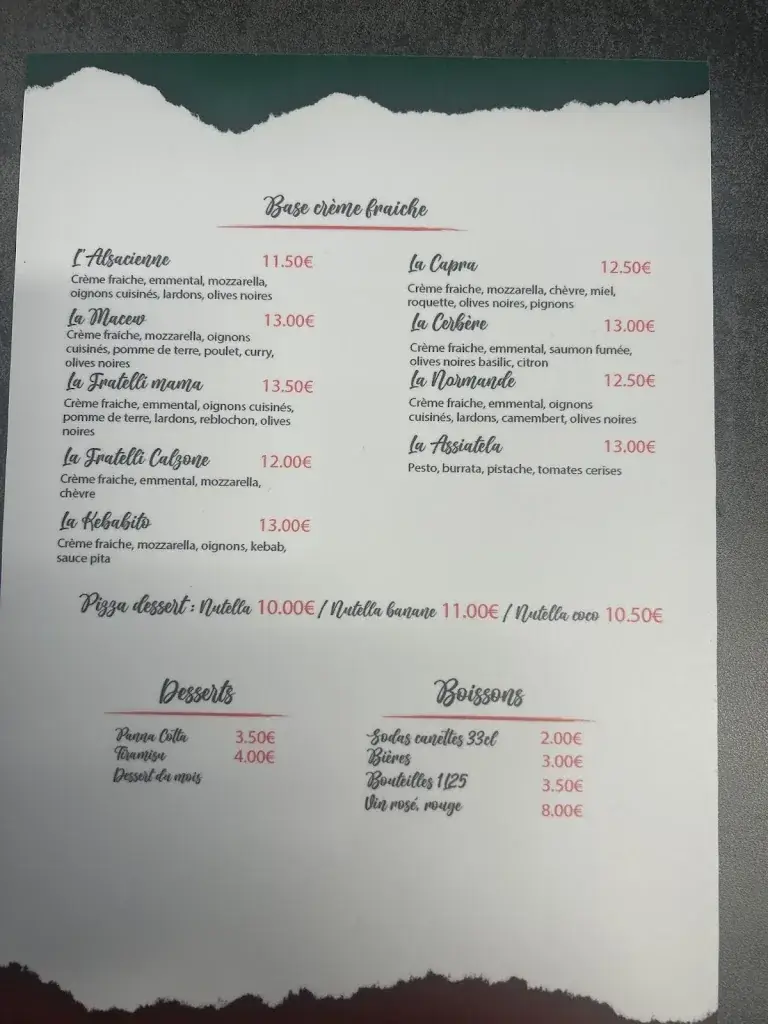 Base crème fraiche
L'Alsacienne 11.50€
Crème fraiche, emmental, mozzarella,
oignons cuisinés, lardons, olives noires
La Macew 13.00€
Crème fraiche, mozzarella, oignons
cuisinés, pomme de terre, poulet, curry,
olives noires
La Fratelli mama 13.50€
Crème fraiche, emmental, oignons cuisinés,
pomme de terre, lardons, reblochon, olives
noires
La Fratelli Calzone 12.00€
Crème fraiche, emmental, mozzarella,
chèvre
La Kebabito 13.00€
Crème fraiche, mozzarella, oignons, kebab,
sauce pita
La Capra 12.50€
Crème fraiche, mozzarella, chèvre, miel,
roquette, olives noires, pignons
La Cerbère 13.00€
Crème fraiche, emmental, saumon fumée,
olives noires basilic, citron
La Normande 12.50€
Crème fraiche, emmental, oignons
cuisinés, lardons, camembert, olives noires
La Assiatela 13.00€
Pesto, burrata, pistache, tomates cerises
Pizza dessert : Nutella 10.00€ / Nutella banane 11.00€ / Nutella coco 10.50€
Desserts
Panna Cotta 3.50€
Tiramisu 4.00€
Dessert du mois
Boissons
Sodas canettes 33cl 2.00€
Bières 3.00€
Bouteilles 1L25 3.50€
Vin rosé, rouge 8.00€